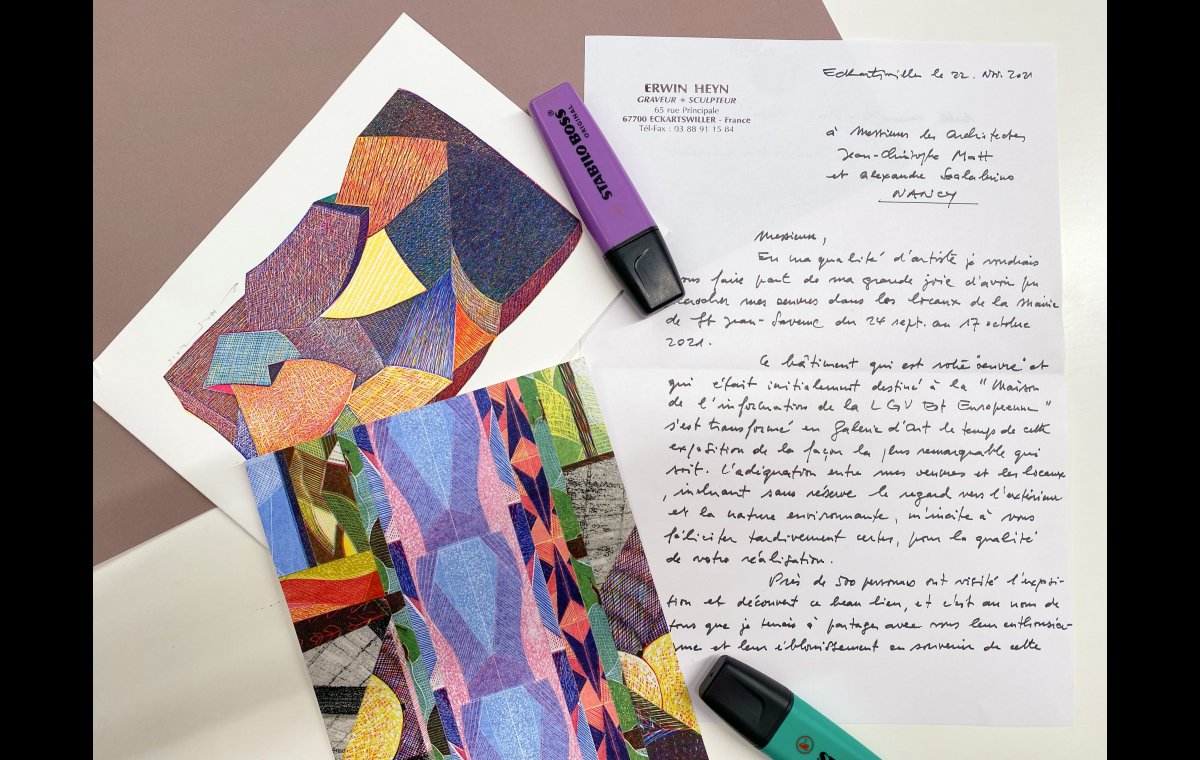 ERWIN HEYN
GRAVEUR * SCULPTEUR
65 rue Principale
67700 ECKARTSWILLER - France
Tél-Fax : 03 88 91 15 84
Eckartswiller le 22. Nov. 2021
à Messieurs les architectes
Jean-Christophe Matt
et Alexandre
NANCY
Messieurs,
En ma qualité d'artiste je voudrais
vous faire part de ma grande joie d'avoir pu
accrocher mes œuvres dans les locaux de la Mairie
de St Jean-Saverne du 24 sept. au 17 octobre
2021.
Ce bâtiment qui est votre œuvre et
qui était initialement destiné à la "Maison
de l'information de la LGV Est Européenne"
s'est transformé en galerie d'art le temps de cette
exposition de la façon la plus remarquable qui
soit. L'adéquation entre mes œuvres et les locaux
, incluant sans réserve le regard vers l'extérieur
et la nature environnante, m'incite à vous
féliciter tardivement certes, pour la qualité
de votre réalisation.
Près de 500 personnes ont visité l'exposi-
tion et découvert ce beau lieu, et c'est au nom de
tous que je tenais à partager avec vous leur enthousias-
me et leur éblouissement en souvenir de cette
STABILO BOSS®
ORIGINAL